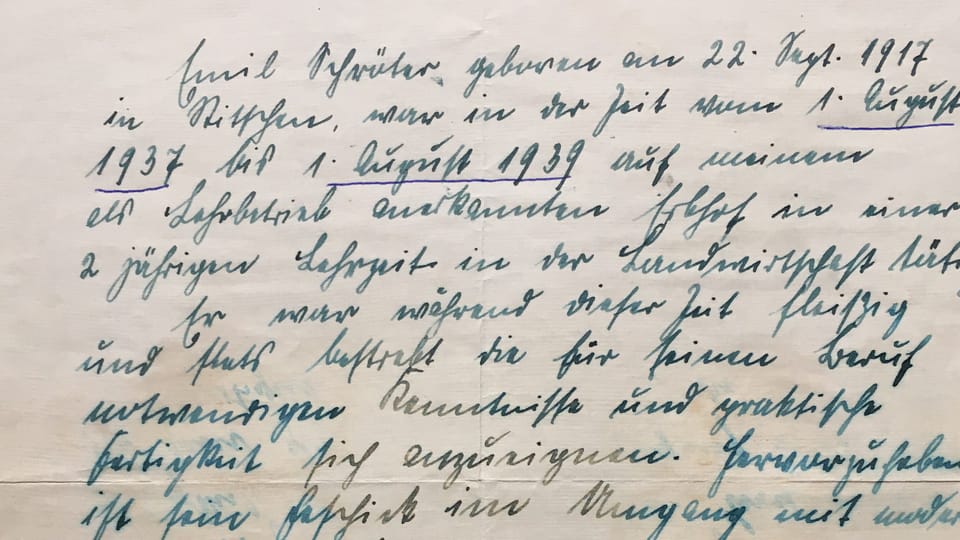 Emil Schröter geboren am 22. Sept. 1917
in Stitschen, war in der Zeit vom 1. August
1937 bis 1. August 1939 auf meinem
als Lehrbetrieb anerkannten Erbhof in einer
2 jährigen Lehrzeit in der Landwirtschaft tät
Er war während dieser Zeit fleißig
und stets bestrebt die für seinen Beruf
notwendigen Kenntnisse und praktische
Fertigkeit sich anzueignen. Hervorzuheben
ist sein Geschick im Umgang mit moder